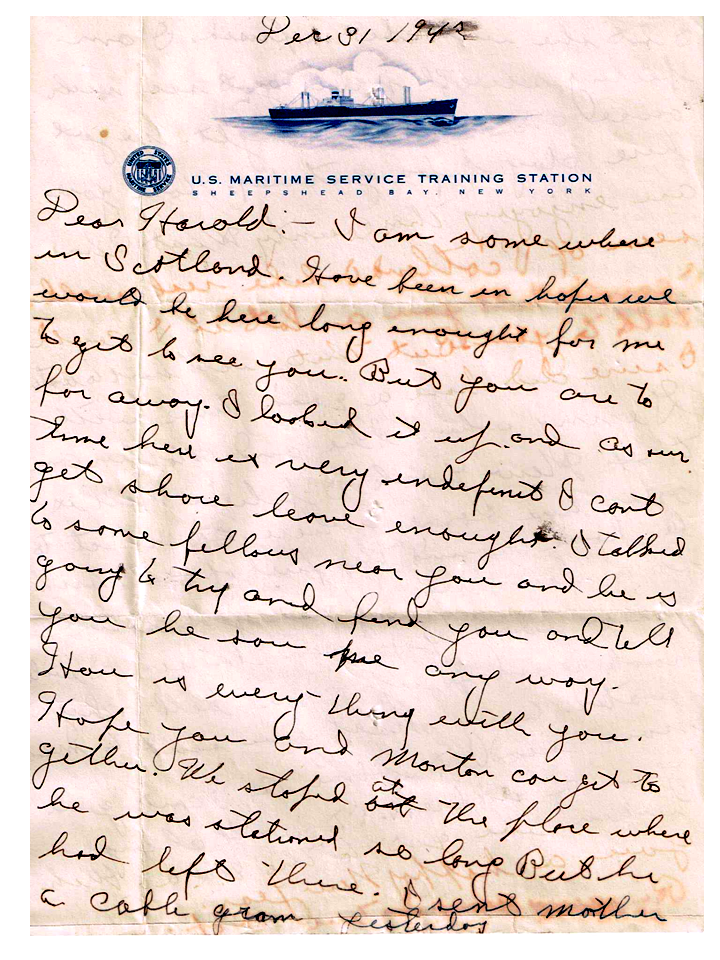 Dec 31 194
U.S. MARITIME SERVICE TRAINING STATION
SHEEPSHEAD BAY, NEW YORK
Dear Harold:- I am some where
in Scotland. Have been in hopes we
would be here long enought for me
to get to see you. But you are to
far away. I looked it up and as our
time here is very indefinit I cant
get shore leave enought. I talked
to some fellows near you and he is
going to try and find you and tell
you he saw me any way.
How is every thing with you.
Hope you and Morton can get to
gether. We stoped at the place where
he was stationed so long But he
had left there. I sent mother
a cable gram yesterday